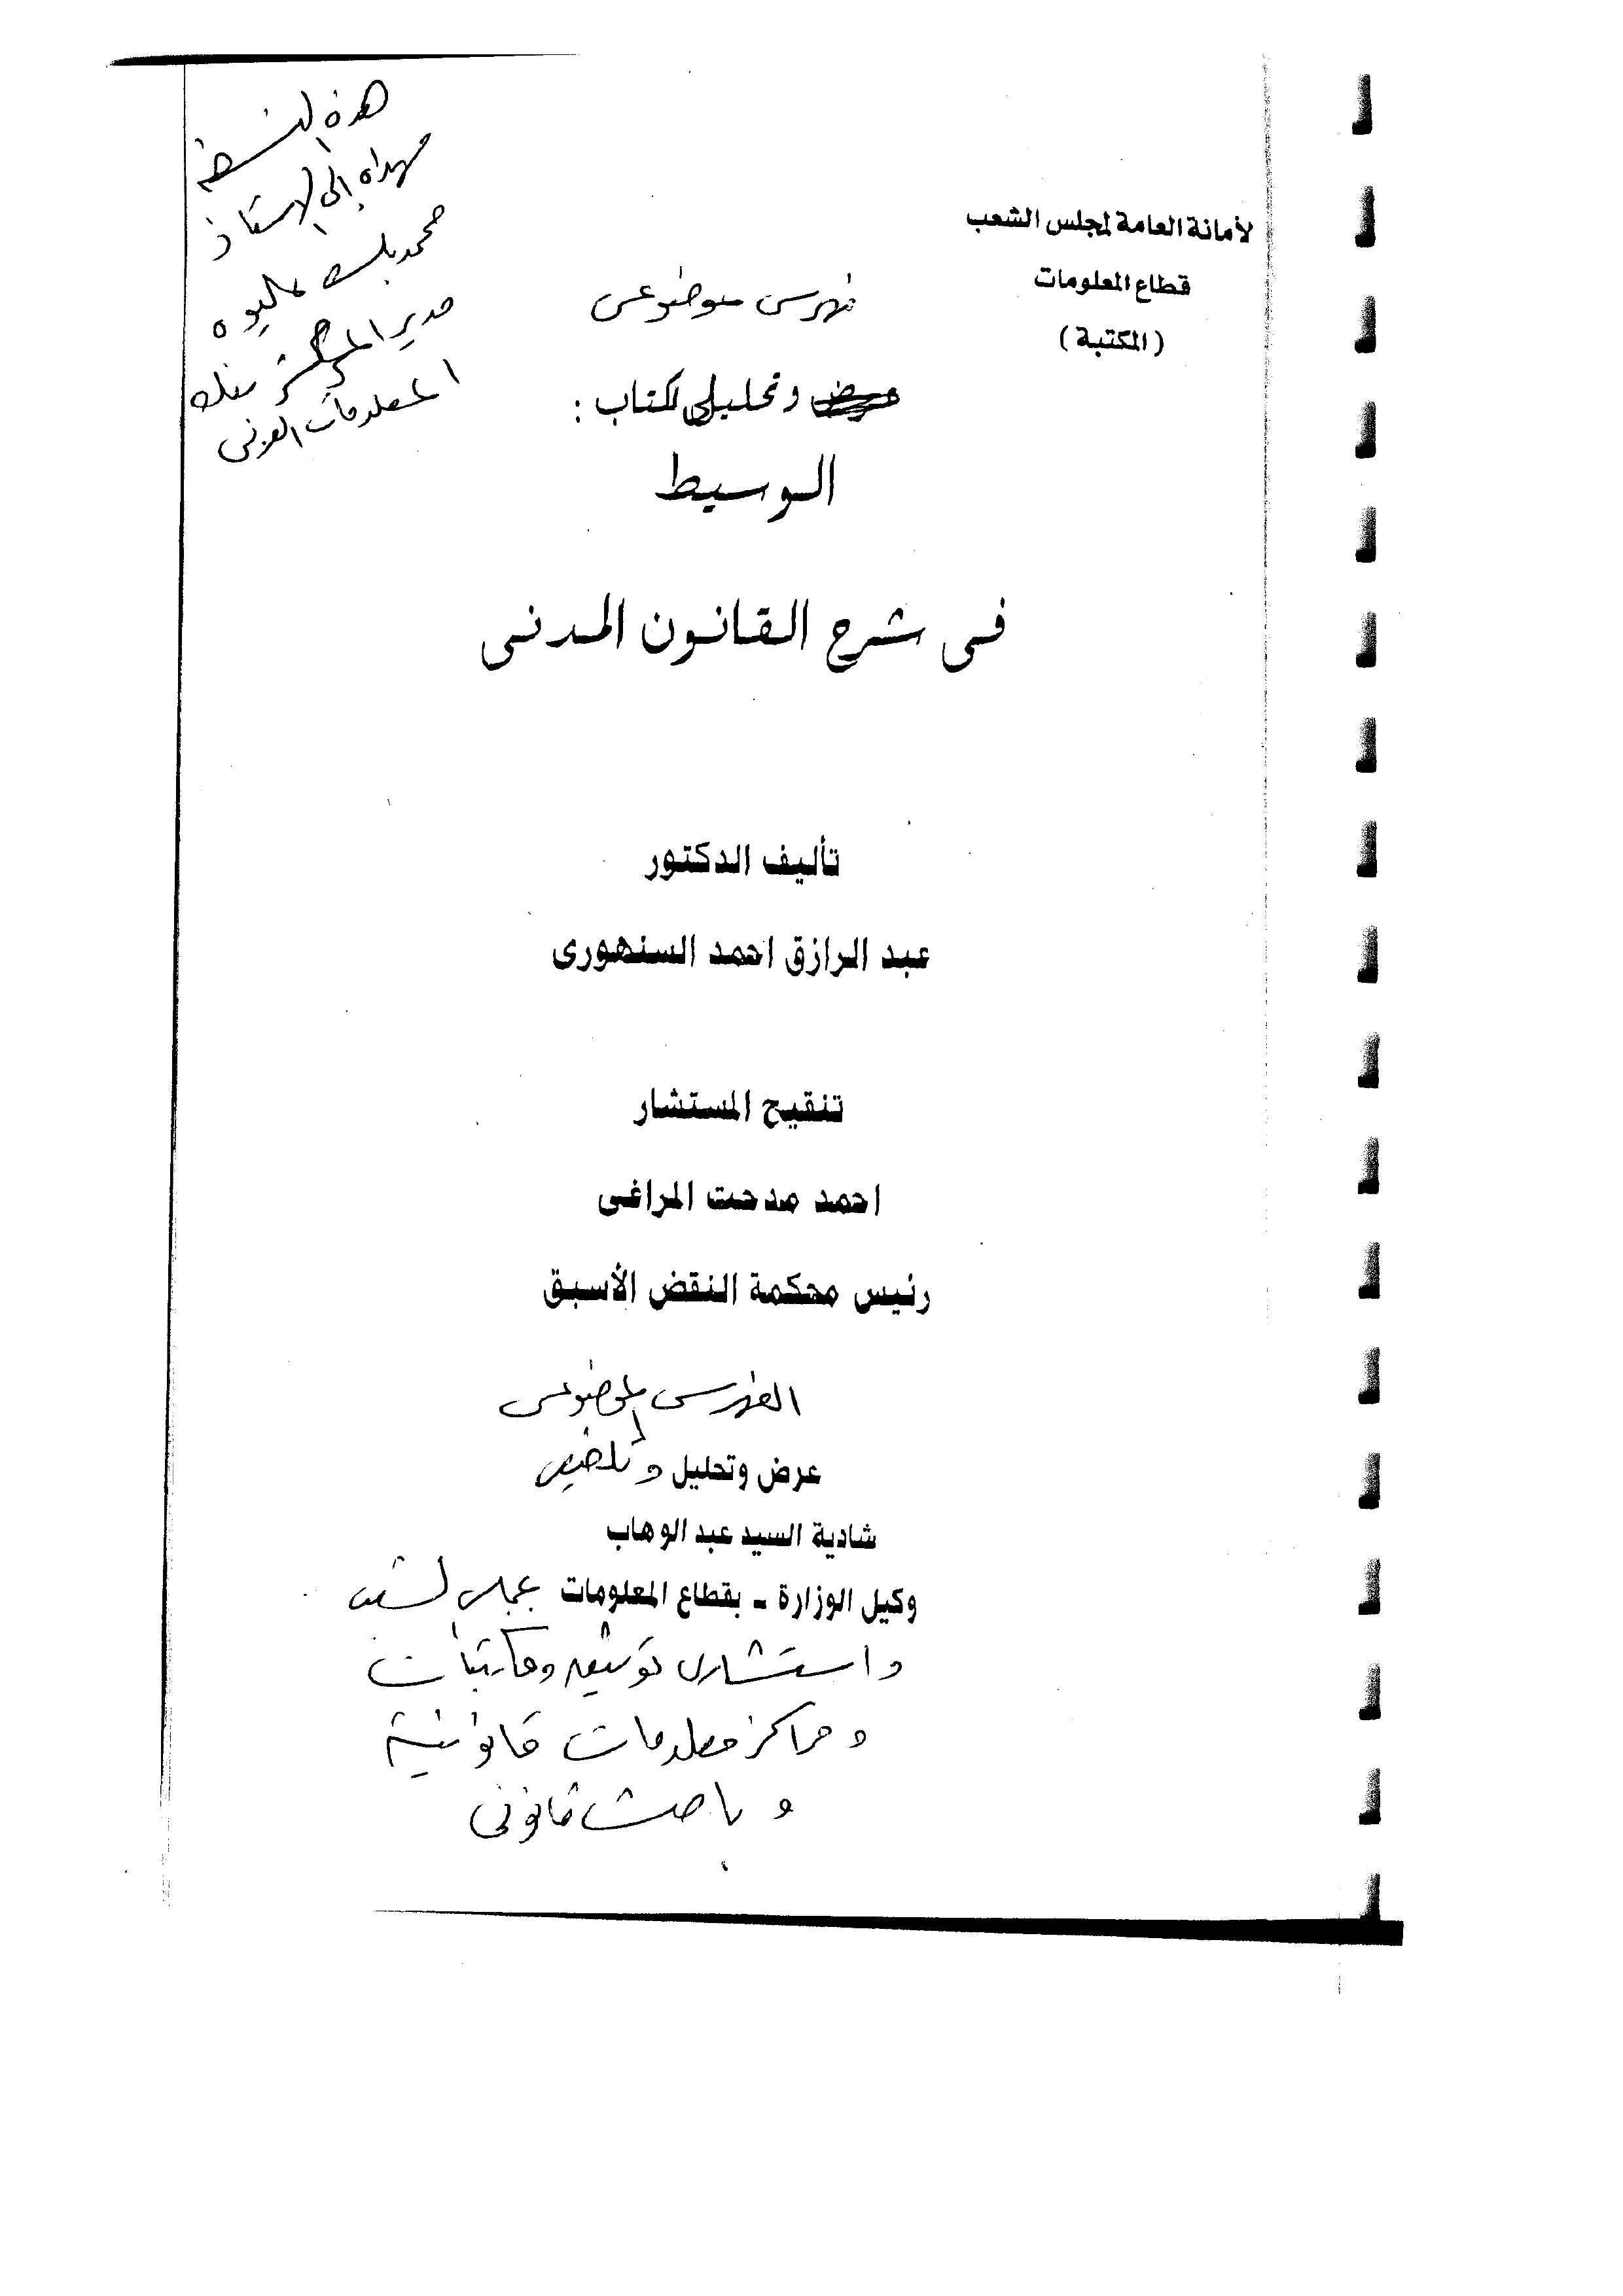 لأمانة العامة لمجلس الشعب
قطاع المعلومات
(المكتبة)
هذه النسخة
مهداه إلى الاستاذ
محمد
مدير المركز بنك
المعلومات العربى
فهرس موضوعى
عرض وتحليلى لكتاب :
الوسيط
فى شرح القانون المدنى
تأليف الدكتور
عبد الرازق احمد السنهورى
تنقيح المستشار
احمد مدحت المراغى
رئيس محكمة النقض الأسبق
الفهرس الموضوعى
عرض وتحليل وتلخيص
شادية السيد عبد الوهاب
وكيل الوزارة - بقطاع المعلومات بمجلس الشعب
واستشارى توثيق ومكتبات
ومراكز معلومات قانونية
وباحث قانونى